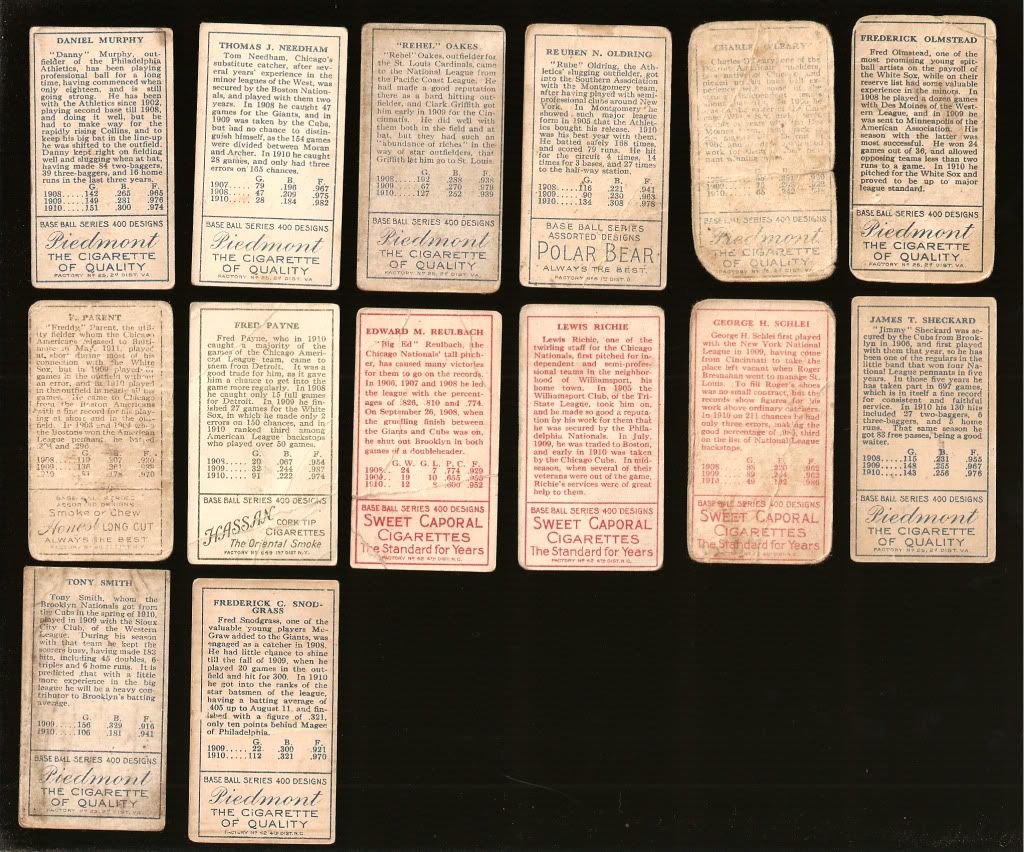 DANIEL MURPHY
"Danny" Murphy, out-
fielder of the Philadelphia
Athletics, has been playing
professional ball for a long
time, having commenced when
only eighteen, and is still
going strong. He has been
with the Athletics since 1902,
playing second base till 1908,
and doing it well, but he
had to make way for the
rapidly rising Collins, and to
keep his big bat in the line-up
he was shifted to the outfield.
Danny kept right on fielding
well and slugging when at bat,
having made 84 two-baggers,
39 three-baggers, and 16 home
runs in the last three years.
G. B. F.
1908.....142 .265 .965
1909.....149 .281 .976
1910.....151 .300 .974
BASE BALL SERIES 400 DESIGNS
Piedmont
THE CIGARETTE
OF QUALITY
FACTORY Nº 25, 2ᴰ DIST. VA.
THOMAS J. NEEDHAM
Tom Needham, Chicago's
substitute catcher, after sev-
eral years' experience in the
minor leagues of the West, was
secured by the Boston Nation-
als, and played with them two
years. In 1908 he caught 47
games for the Giants, and in
1909 was taken by the Cubs,
but had no chance to distin-
guish himself, as the 154 games
were divided between Moran
and Archer. In 1910 he caught
28 games, and only had three
errors on 165 chances.
G. B. F.
1907.....79 .196 .967
1908.....47 .209 .975
1910.....28 .184 .982
BASE BALL SERIES 400 DESIGNS
Piedmont
THE CIGARETTE
OF QUALITY
FACTORY Nº 25, 2ᴰ DIST. VA.
"REHEL" OAKES
"Rebel" Oakes, outfielder for
the St. Louis Cardinals, came
to the National League from
the Pacific Coast League. He
had made a good reputation
there as a hard hitting out-
fielder, and Clark Griffith got
him early in 1909 for the Cin-
cinnatis. He did well with
them both in the field and at
bat, but they had such an
"abundance of riches" in the
way of star outfielders, that
Griffith let him go to St. Louis.
G. B. F.
1908.....192 .288 .938
1909.....67 .270 .979
1910.....127 .252 .939
BASE BALL SERIES 400 DESIGNS
Piedmont
THE CIGARETTE
OF QUALITY
REUBEN N. OLDRING
"Rube" Oldring, the Ath-
letics' slugging outfielder, got
into the Southern Association
with the Montgomery team,
after having played with semi-
professional clubs around New
York. In Montgomery he
showed such major league
form in 1905 that the Athlet-
ics bought his release. 1910
was his best year with them.
He batted safely 168 times,
and scored 79 runs. He hit
for the circuit 4 times, 14
times for 3 bases, and 27 times
to the half-way station.
G. B. F.
1908.....116 .221 .941
1909.....90 .230 .963
1910.....134 .308 .978
BASE BALL SERIES
ASSORTED DESIGNS
POLAR BEAR
ALWAYS THE BEST.
CHARLES O'LEARY
Charles O'Leary, one of the
BASE BALL SERIES 400 DESIGNS
Piedmont
THE CIGARETTE
OF QUALITY
FREDERICK OLMSTEAD
Fred Olmstead, one of the
most promising young spit-
ball artists on the payroll of
the White Sox, while on their
reserve list had some valuable
experience in the minors. In
1908 he played a dozen games
with Des Moines of the West-
ern League, and in 1909 he
was sent to Minneapolis of the
American Association. His
season with the latter was
most successful. He won 24
games out of 36, and allowed
opposing teams less than two
runs to a game. In 1910 he
pitched for the White Sox and
proved to be up to major
league standard.
BASE BALL SERIES 400 DESIGNS
Piedmont
THE CIGARETTE
OF QUALITY
FACTORY Nº 25, 2ᴰ DIST. VA.
F. PARENT
"Freddy" Parent, the utili-
ty fielder whom the Chicago
Americans released to Balti-
more in May, 1911, played
at short during most of his
connection with the White
Sox, but in 1909 played
games in the outfield without
an error, and in 1910 played
games. He came to Chicago
from the Boston Americans
BASE BALL SERIES
ASSORTED DESIGNS
Smoke or Chew
Honest LONG CUT
ALWAYS THE BEST
FRED PAYNE
Fred Payne, who in 1910
caught a majority of the
games of the Chicago Ameri-
can League team, came to
them from Detroit. It was a
good trade for him, as it gave
him a chance to get into the
game more regularly. In 1908
he caught only 15 full games
for Detroit. In 1909 he fin-
ished 27 games for the White
Sox, in which he made only 2
errors on 150 chances, and in
1910 ranked third among
American League backstops
who played over 50 games.
G. B. F.
1908.....20 .067 .954
1909.....32 .244 .987
1910.....91 .222 .974
BASE BALL SERIES 400 DESIGNS
HASSAN CORK TIP
CIGARETTES
The Oriental Smoke
FACTORY Nº 649 1ˢᵀ DIST. N.Y.
EDWARD M. REULBACH
"Big Ed" Reulbach, the
Chicago Nationals' tall pitch-
er, has caused many victories
for them to go on the records.
In 1906, 1907 and 1908 he led
the league with the percent-
ages of .826, .810 and .774.
On September 26, 1908, when
the gruelling finish between
the Giants and Cubs was on,
he shut out Brooklyn in both
games of a doubleheader.
G. W. G. L. P. C. F.
1908.....24 7 .774 .929
1909.....19 10 .655 .955
1910.....12 8 .600 .952
BASE BALL SERIES 400 DESIGNS
SWEET CAPORAL
CIGARETTES
The Standard for Years
FACTORY Nº 42 4ᵀᴴ DIST. N.C.
LEWIS RICHIE
Lewis Richie, one of the
twirling staff for the Chicago
Nationals, first pitched for in-
dependent and semi-profes-
sional teams in the neighbor-
hood of Williamsport, his
home town. In 1905 the
Williamsport Club, of the Tri-
State League, took him on,
and he made so good a reputa-
tion by his work for them that
he was secured by the Phila-
delphia Nationals. In July,
1909, he was traded to Boston,
and early in 1910 was taken
by the Chicago Cubs. In mid-
season, when several of their
veterans were out of the game,
Richie's services were of great
help to them.
BASE BALL SERIES 400 DESIGNS
SWEET CAPORAL
CIGARETTES
The Standard for Years
FACTORY Nº 42 4ᵀᴴ DIST. N.C.
GEORGE H. SCHLEI
George H. Schlei first played
with the New York National
League in 1909, having come
from Cincinnati to take the
place left vacant when Roger
Bresnahan went to manage St.
Louis. To fill Roger's shoes
was no small contract, but the
records show figures for his
work above ordinary catchers.
In 1910 on 211 chances he had
only three errors, making the
good percentage of .986, third
on the list of National League
backstops.
G. B. F.
BASE BALL SERIES 400 DESIGNS
SWEET CAPORAL
CIGARETTES
The Standard for Years
FACTORY Nº 42 4ᵀᴴ DIST. N.C.
JAMES T. SHECKARD
"Jimmy" Sheckard was se-
cured by the Cubs from Brook-
lyn in 1906, and first played
with them that year, so he has
been one of the regulars in the
little band that won four Na-
tional League pennants in five
years. In those five years he
has taken part in 697 games,
which is in itself a fine record
for consistent and faithful
service. In 1910 his 130 hits
included 27 two-baggers, 6
three-baggers, and 5 home
runs. That same season he
got 83 free passes, being a good
waiter.
G. B. F.
1908.....115 .231 .955
1909.....148 .255 .967
1910.....143 .256 .976
BASE BALL SERIES 400 DESIGNS
Piedmont
THE CIGARETTE
OF QUALITY
FACTORY Nº 25, 2ᴰ DIST. VA.
TONY SMITH
Tony Smith, whom the
Brooklyn Nationals got from
the Cubs in the spring of 1910,
played in 1909 with the Sioux
City Club, of the Western
League. During his season
with that team he kept the
scorers busy, having made 183
hits, including 45 doubles, 6
triples and 6 home runs. It is
predicted that with a little
more experience in the big
league he will be a heavy con-
tributor to Brooklyn's batting
average.
G. B. F.
1909.....156 .329 .916
1910.....106 .181 .941
BASE BALL SERIES 400 DESIGNS
Piedmont
THE CIGARETTE
OF QUALITY
FACTORY Nº 25, 2ᴰ DIST. VA.
FREDERICK C. SNOD-
GRASS
Fred Snodgrass, one of the
valuable young players Mc-
Graw added to the Giants, was
engaged as a catcher in 1908.
He had little chance to shine
till the fall of 1909, when he
played 20 games in the out-
field and hit for 300. In 1910
he got into the ranks of the
star batsmen of the league,
having a batting average of
.405 up to August 11, and fin-
ished with a figure of .321,
only ten points behind Magee
of Philadelphia.
G. B. F.
1909.....22 .300 .921
1910.....112 .321 .970
BASE BALL SERIES 400 DESIGNS
Piedmont
THE CIGARETTE
OF QUALITY
FACTORY Nº 42 4ᵀᴴ DIST. N.C.